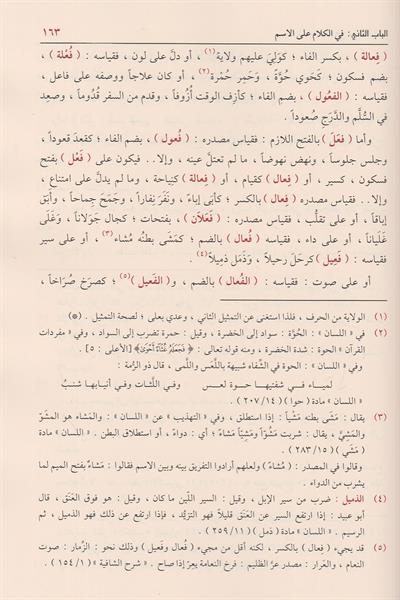 الباب الثاني : في الكلام على الاسم
١٦٣
( فِعالة ) ، بكسر الفاء ؛ كوَلِيَ عليهم ولاية(١) ، أو دلّ على لون ، فقياسه : ( فُعْلة ) ،
بضم فسكون ؛ كحَوِيَ حُوَّةً ، وحَمِر حُمْرة(٢) ، أو كان علاجاً ووصفه على فاعل ،
فقياسه : ( الفعُول ) ، بضم الفاء ؛ كأزِف الوقت أُزُوفاً ، وقدم من السفر قُدُوماً ، وصعِد
في السُّلَّم والدَّرَج صُعوداً .
وأما ( فعَلَ ) بالفتح اللازم : فقياس مصدره : ( فُعول ) ، بضم الفاء ؛ كقعدَ قعوداً ،
وجلس جلوساً ، ونهض نهوضاً ، ما لم تعتلَّ عينه ، وإلا.. فيكون على ( فَعْل ) بفتح
فسكون ، كسير ، أو ( فِعال ) كقيام ، أو ( فِعالة ) كنِياحة ، وما لم يدلَّ على امتناع ،
وإلا.. فقياس مصدره ( فِعال ) بالكسر ؛ كأبى إباءً ، ونَفَرَ نِفاراً ، وجَمَحَ جِماحاً ، وأبَق
إباقاً ، أو على تقلُّب ، فقياس مصدره : ( فَعَلان ) ، بفتحات ؛ كجال جَولاناً ، وغَلَى
غَلَياناً ، أو على داء ، فقياسه ( فُعال ) بالضم ؛ كمَشَى بطنُه مُشاء(٣) ، أو على سير
فقياسه : ( فَعِيل ) كرحَل رحيلاً ، وذَمَل ذَمِيلاً(٤) .
أو على صوت : فقياسه : ( الفُعال ) بالضم ، و( الفَعيل )(٥) ؛ كصرَخ صُرَاخاً ،
(١) الولاية من الحرف ، فلذا استغنى عن التمثيل الثاني ، وعدي بعلى ؛ لصحة التمثيل . (*)
(٢) في « اللسان » : الحُوَّة : سواد إلى الخضرة ، وقيل : حمرة تضرب إلى السواد ، وفي « مفردات
القرآن » الحوة : شدة الخضرة ، ومنه قوله تعالى : ﴿ فَجَعَلَهُ غُثَاءً أَحْوَىٰ ﴾ [الأعلى : ٥] .
وفي « اللسان » : الحوة في الشفاه شبيهة باللَّعَس واللَّمى ، قال ذو الرُّمة :
لميـاء فـي شفتيهـا حـوة لعـس وفـي اللِّثـات وفـي أنيـابهـا شنـبُ
« اللسان » مادة ( حوا ) ( ٢٠٧/١٤ ) .
(٣) يقال : مَشَى بطنه مَشْياً : إذا استطلق ، وفي « التهذيب » عن « اللسان » : والمَشاء هو المَشُوّ
والمَشِيّ ، يقال : شربت مَشُوّاً ومَشِيّاً مَشاءً ؛ أي : دواءً ، أو استطلاق البطن . « اللسان » مادة
( مشى ) ( ٢٨٣/١٥ ) .
وقالوا في المصدر : ( مُشاء ) ولعلهم أرادوا التفريق بينه وبين الاسم فقالوا : مَشاءً بفتح الميم لما
يشرب من الدواء .
(٤) الذميل : ضرب من سير الإبل ، وقيل : السير اللين ما كان ، وقيل : هو فوق العَنَق ، قال
أبو عبيد : إذا ارتفع السير عن العَنَق قليلاً فهو التزيُّد ، فإذا ارتفع عن ذلك فهو الذميل ، ثم
الرسيم . « اللسان » مادة ( ذمل ) ( ٢٥٩/١١ ) .
(٥) قد يجيء ( فِعال ) بالكسر ، لكنه أقل من مجيء ( فُعال وفَعيل ) وذلك نحو : الزِّمار : صوت
النعام ، والعَرار : مصدر عرَّ الظليم : فرخ النعامة يعِرّ إذا صاح . « شرح الشافية » ( ١٥٤/١ ) .